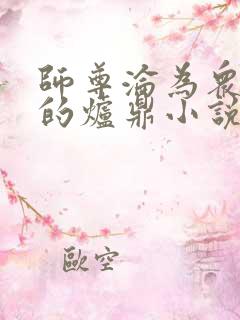 師尊淪為眾
的爐鼎小說
歐空